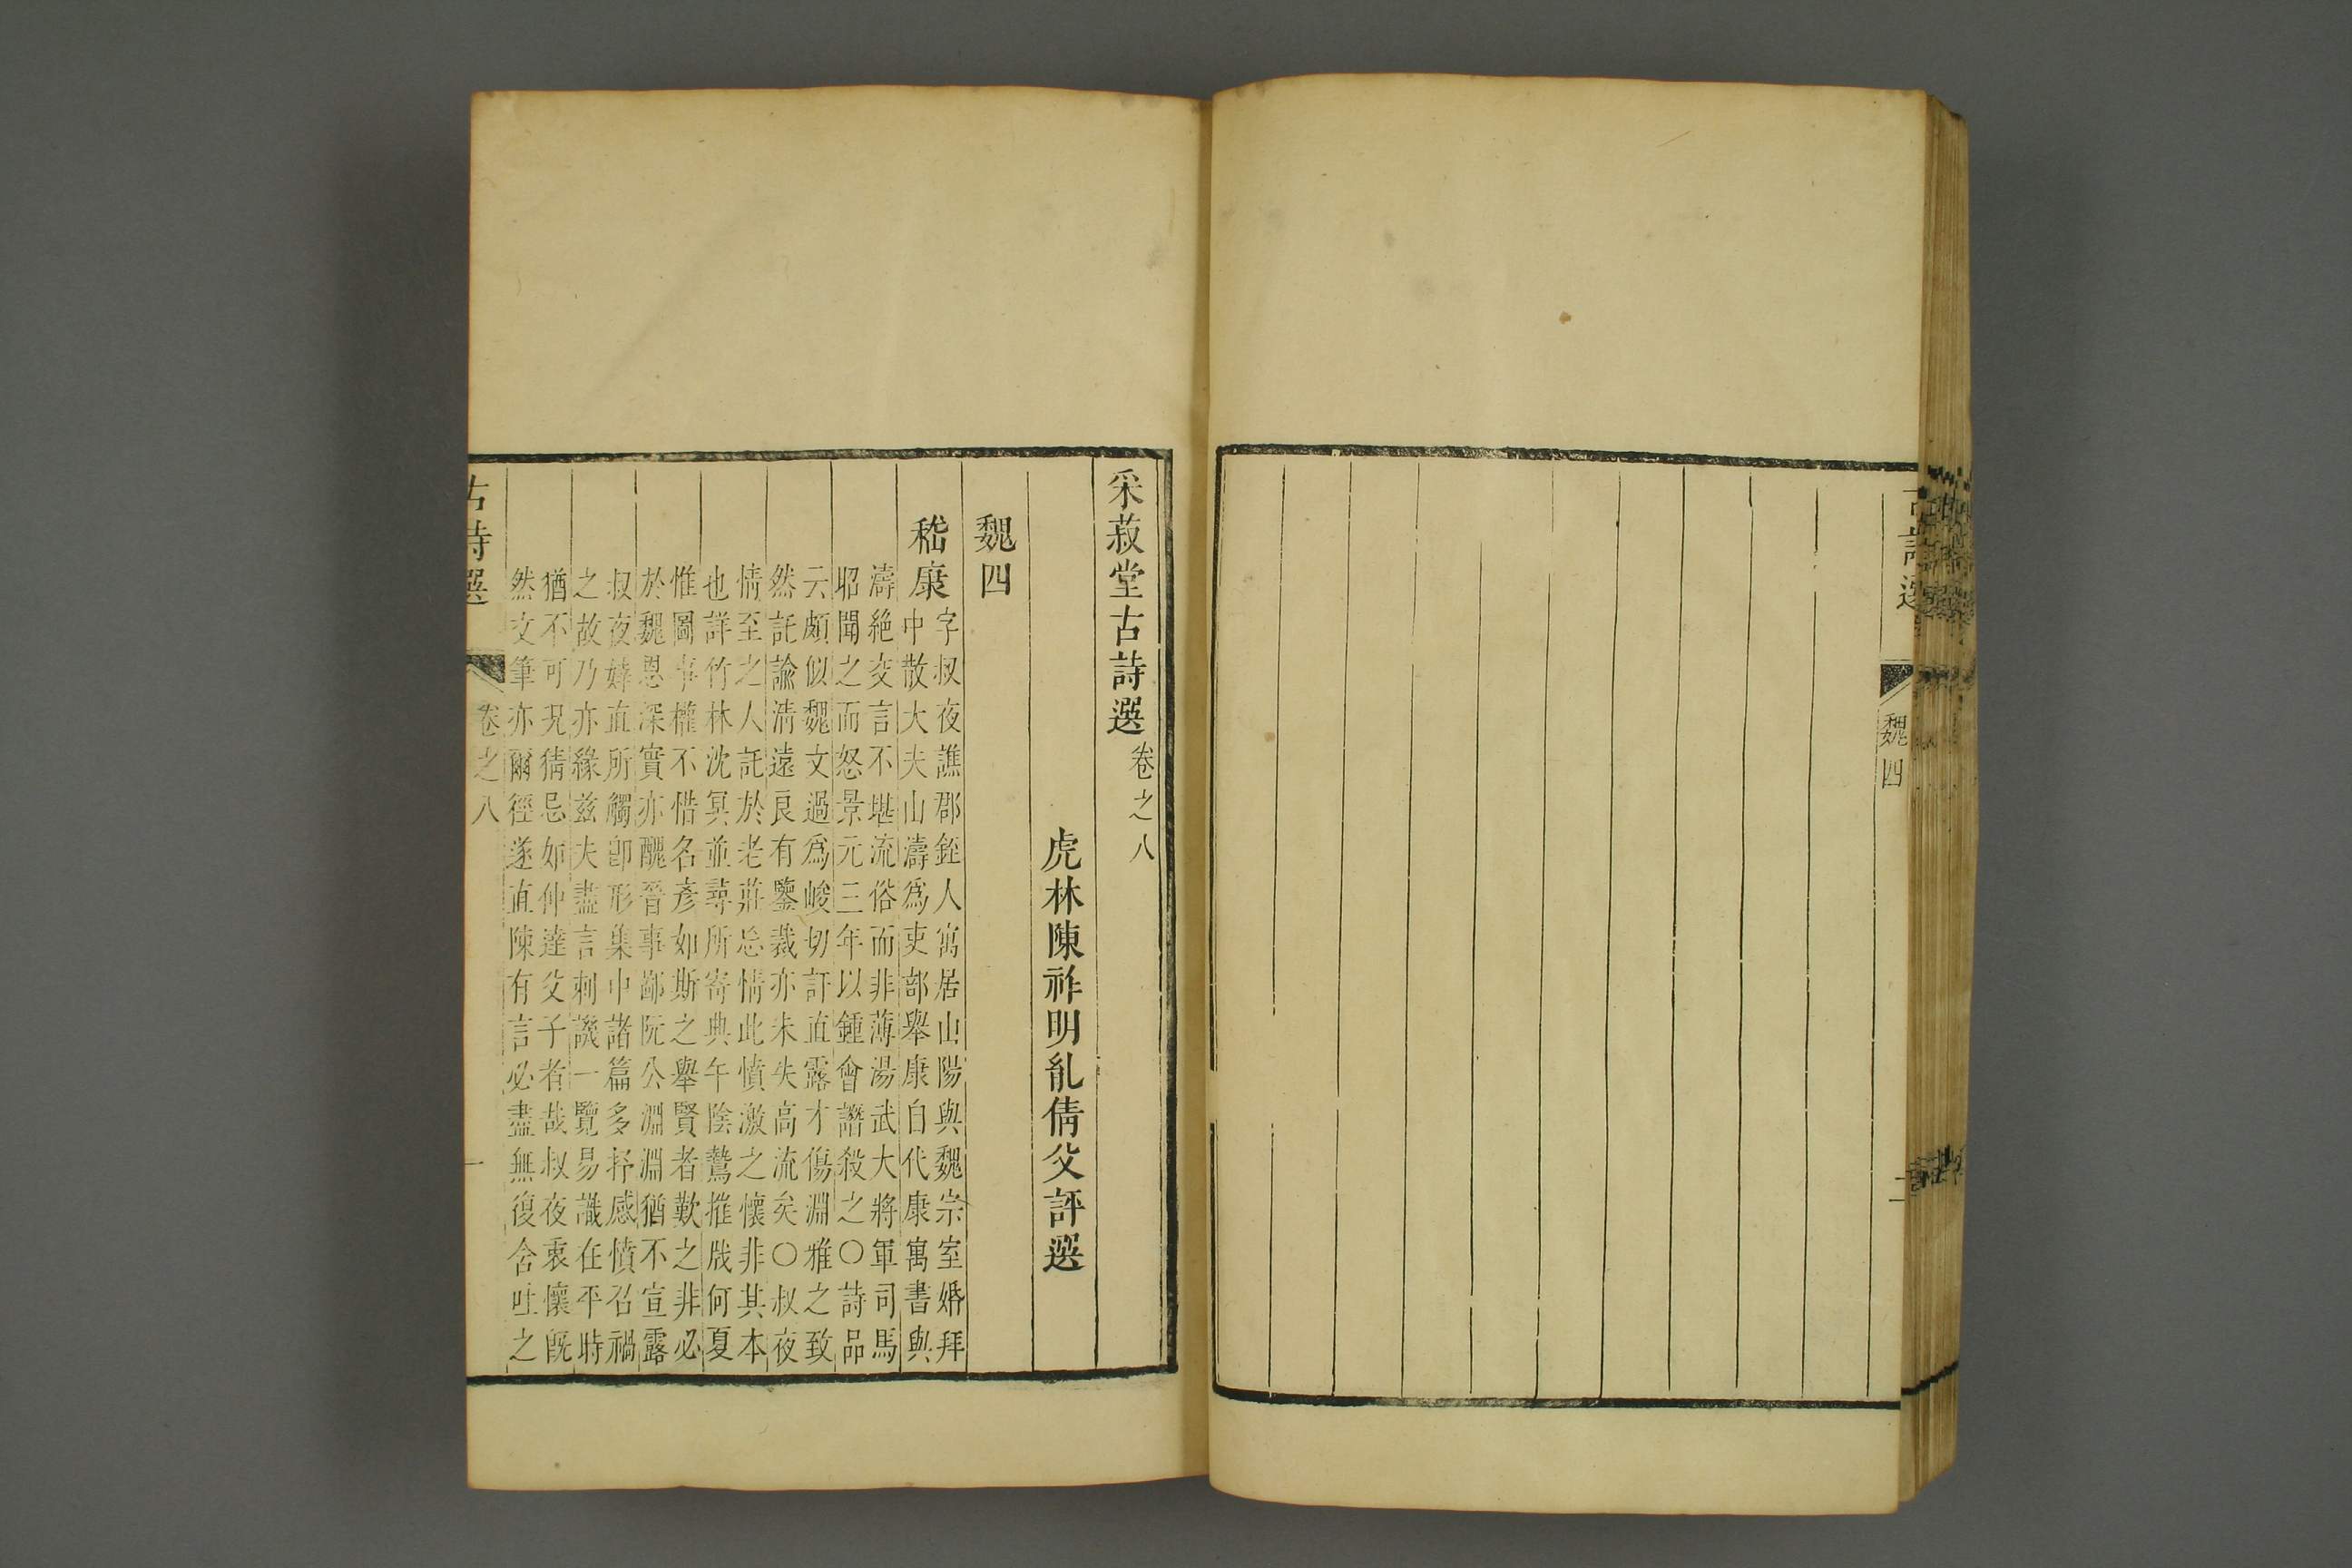 古詩選
魏四
二
采菽堂古詩選卷之八
虎林陳祚明胤倩父評選
魏四
嵇康
字叔夜譙郡銍人寓居山陽與魏宗室婚拜
中散大夫山濤為吏部舉康自代康寓書與
濤絕交言不堪流俗而非薄湯武大將軍司馬
昭聞之而怒景元三年以鍾會譖殺之○詩品
云頗似魏文過為峻切訐直露才傷淵雅之致
然託諭清遠良有鑒裁亦未失高流矣○叔夜
情至之人託於老莊忘情此憤激之懷非其本
也詳竹林沈冥並尋所寄典午陰鷙摧戕何夏
惟圖事權不惜名彥如斯之舉賢者歎之非必
於魏恩深實亦醜晉事鄙阮公淵淵猶不宣露
叔夜婞直所觸即形集中諸篇多抒感憤召禍
之故乃亦緣茲夫盡言刺譏一覽易識在平時
猶不可況猜忌如仲達父子者哉叔夜衷懷既
然文筆亦爾徑遂直陳有言必盡無復含吐之
古詩選
卷之八
一